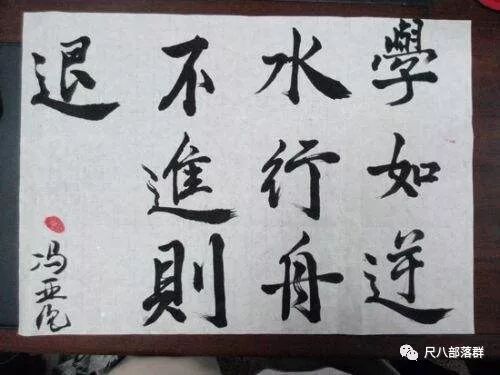 學如逆
水行舟
不進則
退
冯亚
尺八部落群